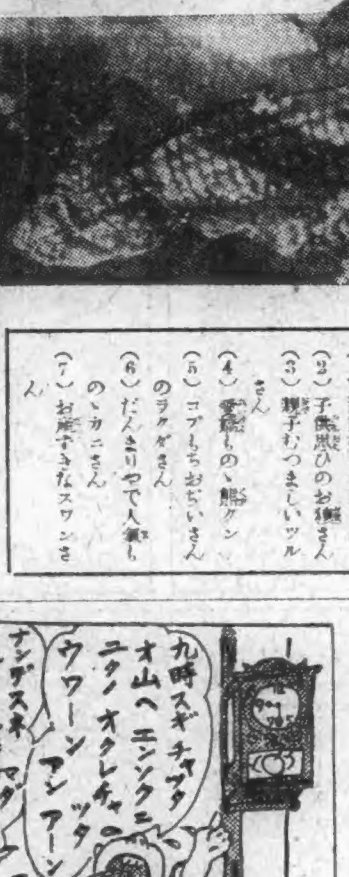 (2) 子供思ひのお猿さん
(3) 親子むつましいツル
さん
(4) 愛嬌ものゝ熊クン
(5) コブもちおぢいさん
のラクダさん
(6) だんまりやで人気も
のゝカニさん
(7) お産ずきなスワンさ
ん
九時スギチャッタ
オ山ヘエンソクニ
ユクノオクレチャ
ツタ
ウワーン アンアーン
ナンデスネ
マダ